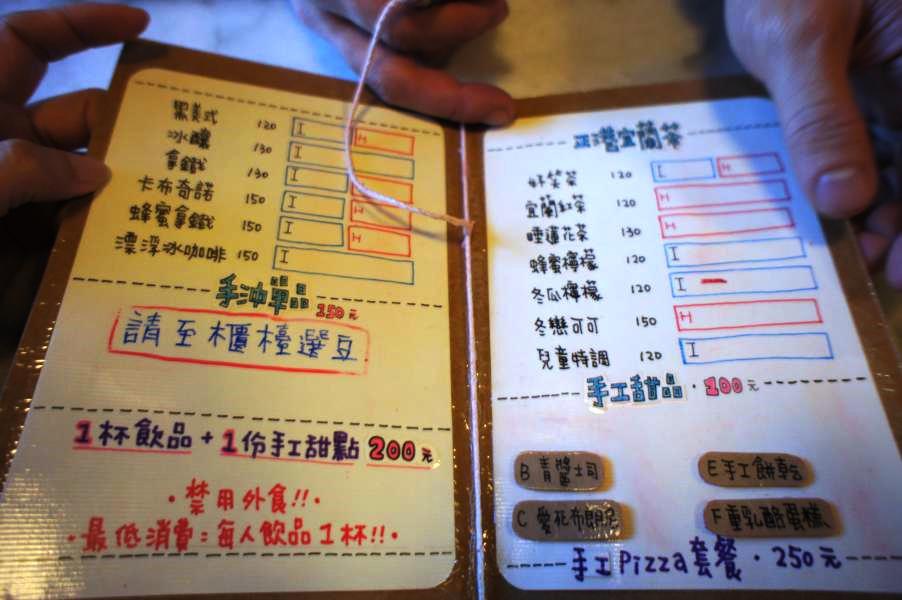 黑美式 120 I H
冰釀 130 I
拿鐵 130 I H
卡布奇諾 150 I H
蜂蜜拿鐵 150 I H
漂浮冰咖啡 150 I
手沖單品 150元
請至櫃檯選豆
1杯飲品+1份手工甜點 200元
·禁用外食!!·
·最低消費:每人飲品1杯!!·
正港宜蘭茶
好笑茶 120 I H
宜蘭紅茶 120 H
睡蓮花茶 130 H
蜂蜜檸檬 120 I
冬瓜檸檬 120 I
冬戀可可 150 H
兒童特調 120 I
手工甜品·100元
B 青醬土司
E 手工餅乾
C 愛花布朗尼
F 重乳酪蛋糕
手工Pizza套餐·250元